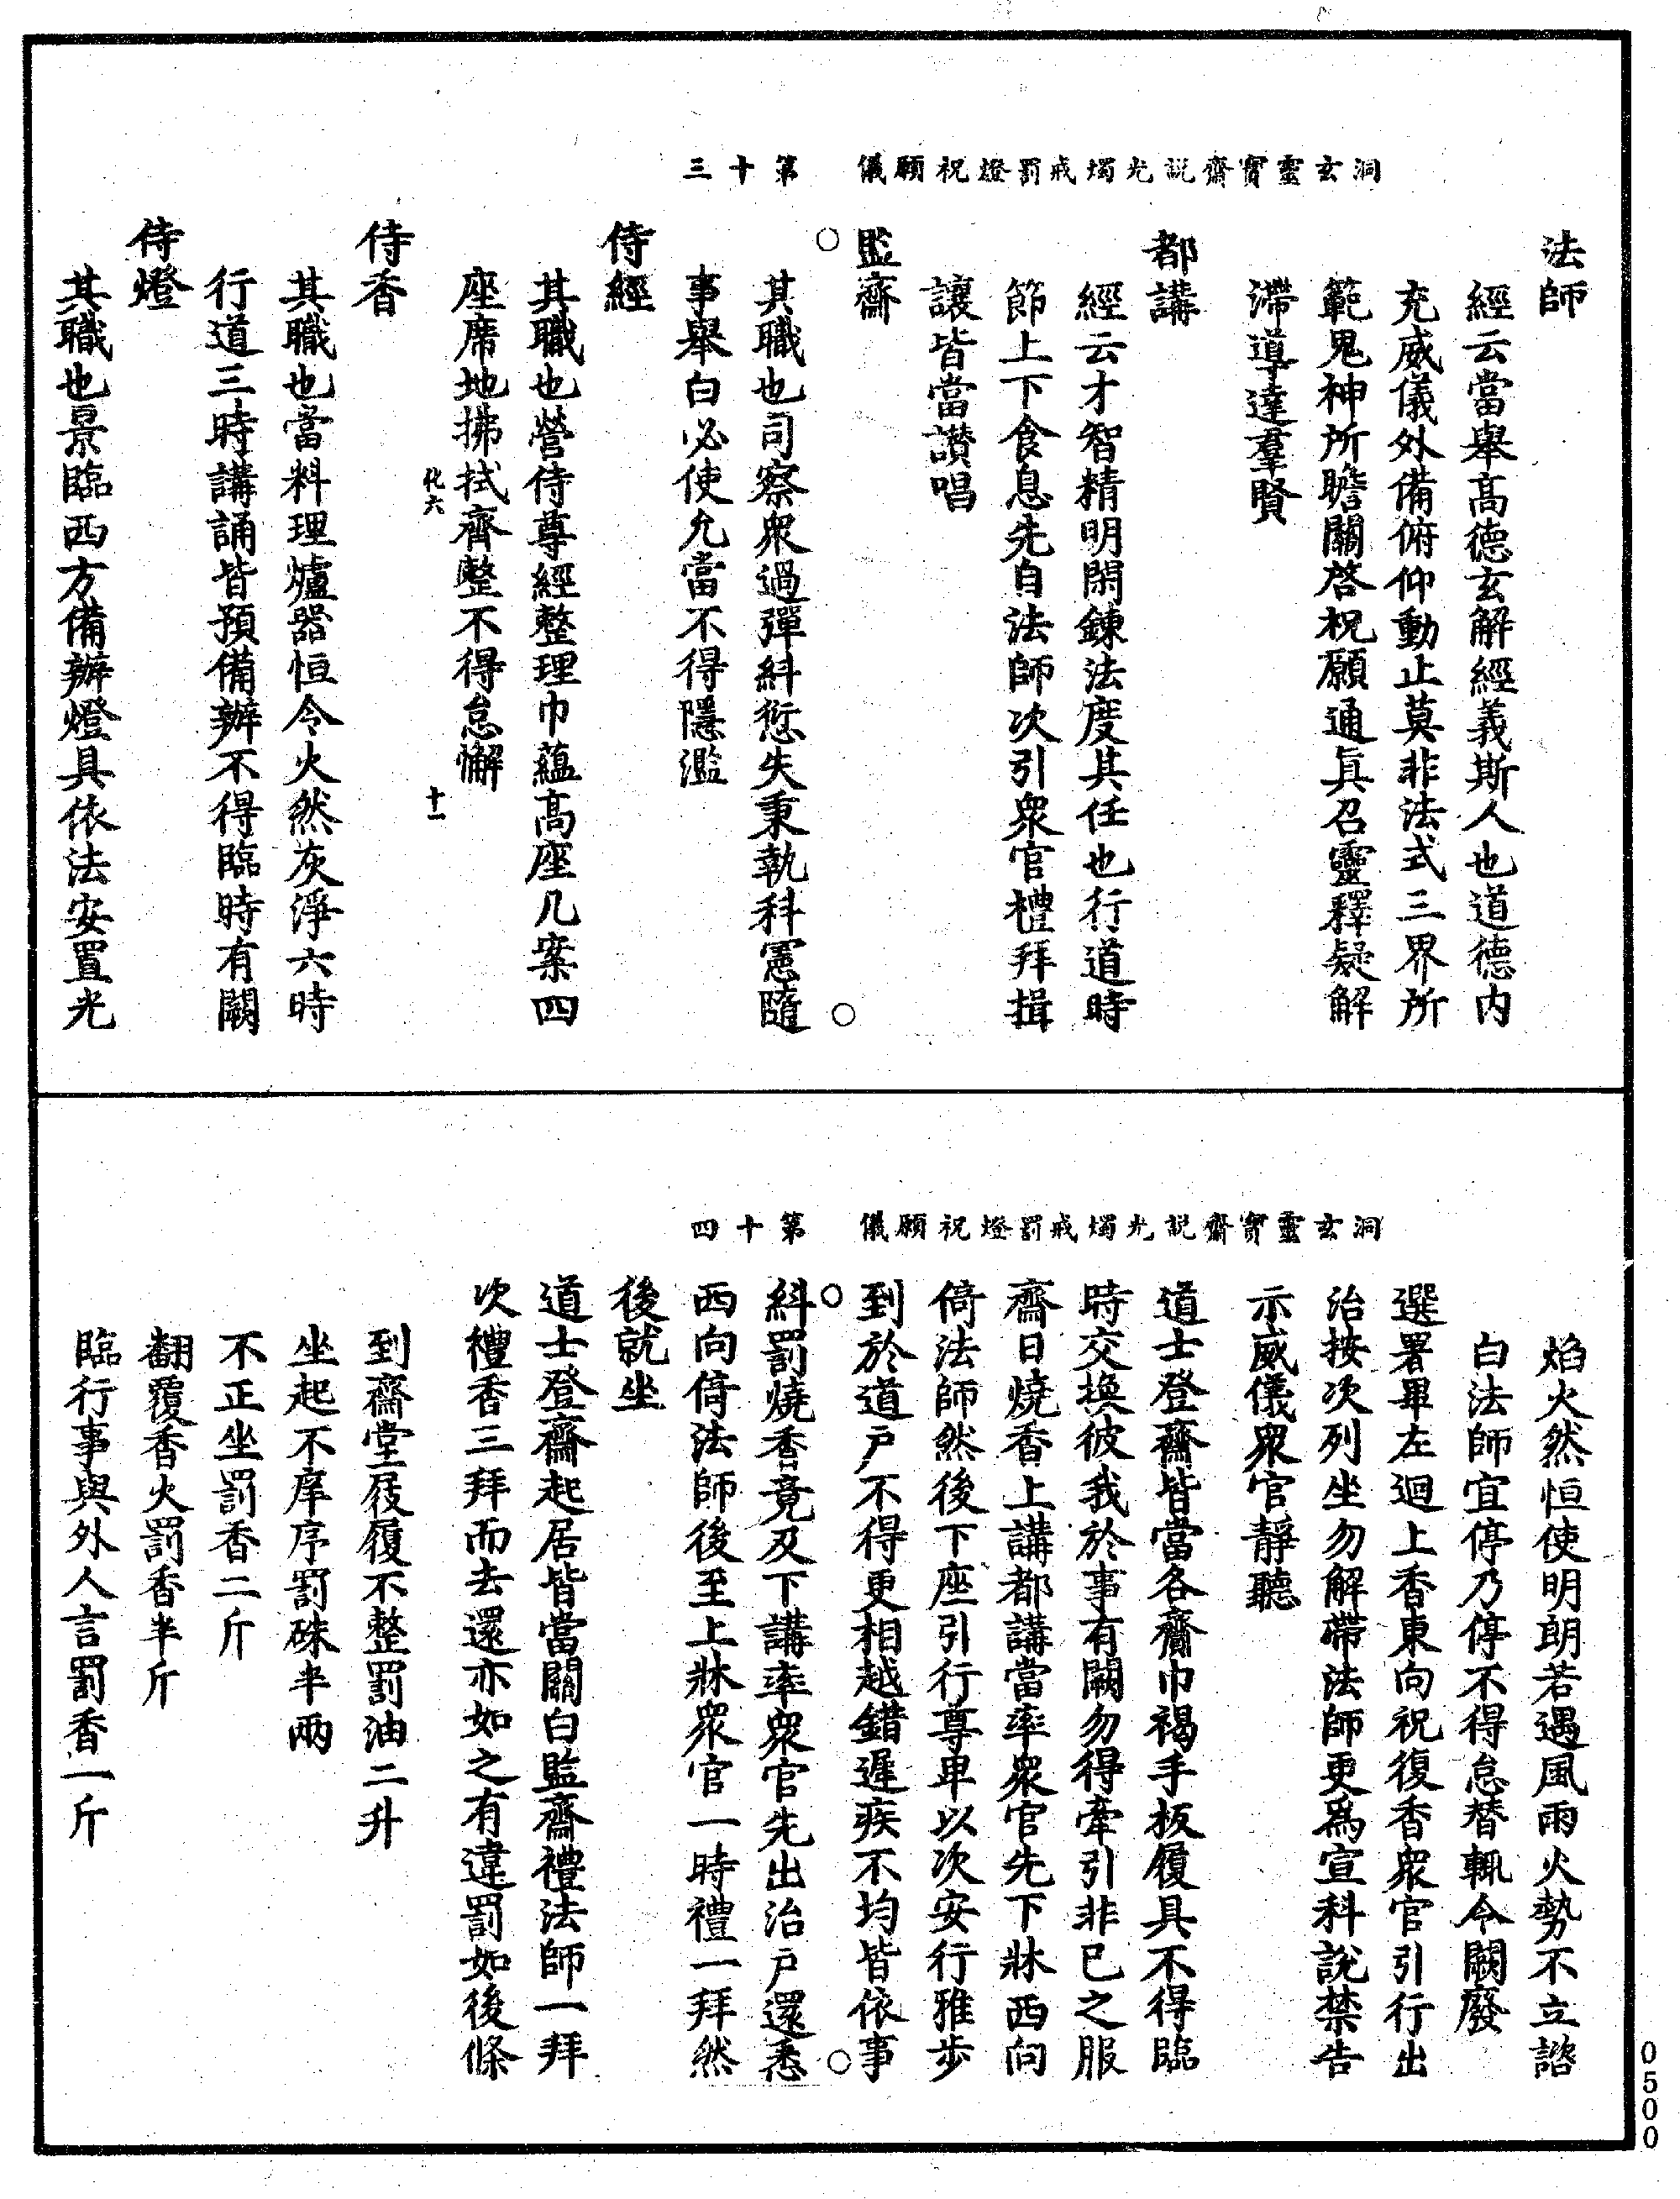 洞玄靈寶齋説光燭戒罰燈祝願儀　第十三
法師
經云當舉髙德玄解經義斯人也道德内
充威儀外備俯仰動止莫非法式三界所
範鬼神所瞻關啓祝願通真召靈釋疑解
滯導達羣賢
都講
經云才智精明閑鍊法度其任也行道時
節上下食息先自法師次引衆官禮拜揖
讓皆當讃唱
監齋
其職也司察衆過彈糾愆失秉執科憲隨
事舉白必使允當不得隱濫
侍經
其職也營侍尊經整理巾藴髙座几案四
座席地拂拭齊整不得怠懈
化六　十一
侍香
其職也當料理爐器恒令火然灰淨六時
行道三時講誦皆預備辦不得臨時有闕
侍燈
其職也景臨西方備辦燈具依法安置光
洞玄靈寶齋説光燭戒罰燈祝願儀　第十四
焰火然恒使明朗若遇風雨火勢不立諮
白法師宜停乃停不得怠替輒令闕廢
選署畢左迴上香東向祝復香衆官引行出
治按次列坐勿解帶法師更爲宣科説禁告
示威儀衆官靜聽
道士登齋皆當各齎巾褐手板履具不得臨
時交換彼我於事有闕勿得牽引非已之服
齋日燒香上講都講當率衆官先下牀西向
倚法師然後下座引行尊卑以次安行雅步
到於道戸不得更相越錯遲疾不均皆依事
糾罰燒香竟及下講率衆官先出治戸還悉
西向倚法師後至上牀衆官一時禮一拜然
後就坐
道士登齋起居皆當關白監齋禮法師一拜
次禮香三拜而去還亦如之有違罰如後條
到齋堂屐履不整罰油二升
坐起不庠序罰硃半兩
不正坐罰香二斤
翻覆香火罰香半斤
臨行事與外人言罰香一斤
0500